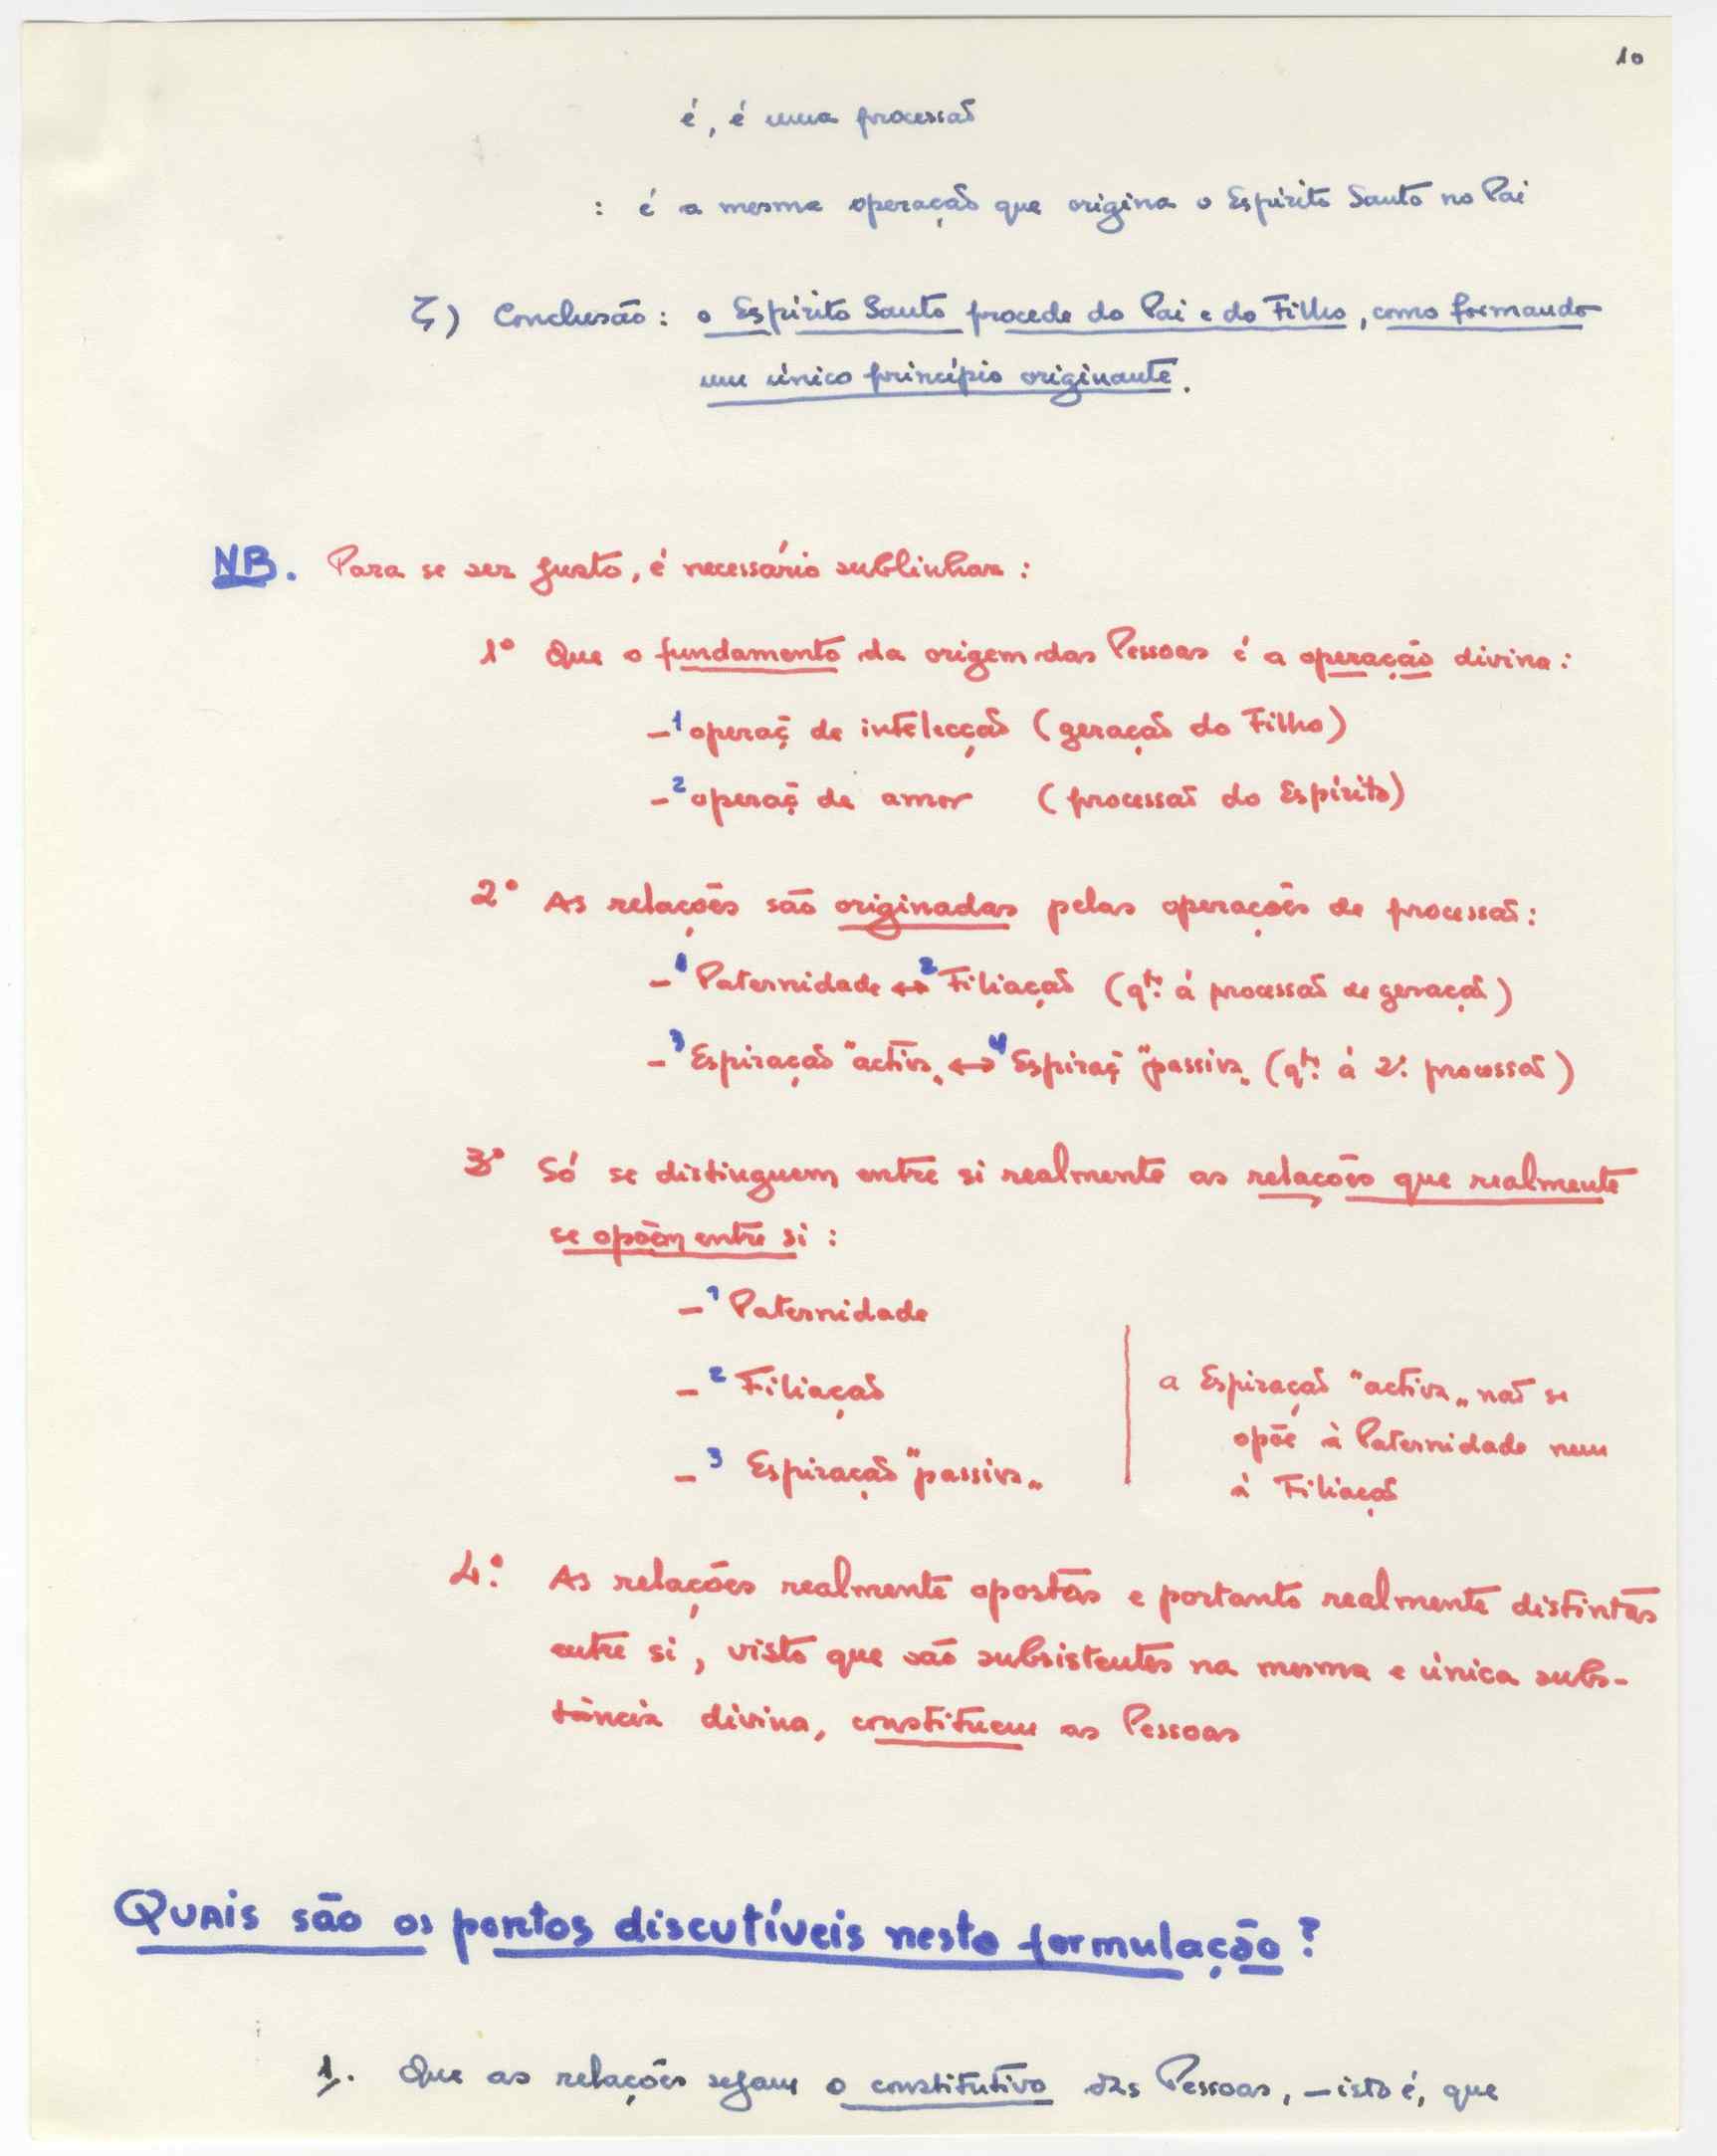 10
é, é uma processão
: é a mesma operação que origina o Espírito Santo no Pai
ζ) Conclusão: o Espírito Santo procede do Pai e do Filho, como formando
um único princípio originante.
NB. Para se ser justo, é necessário sublinhar:
1º Que o fundamento da origem das Pessoas é a operação divina:
-1 operaç̃ de intelecção (geração do Filho)
-2 operaç̃ de amor (processão do Espírito)
2º As relações são originadas pelas operações de processão:
-1 Paternidade ↔ 2 Filiação (qto. à processão de geração)
-3 Espiração "activa" ↔ 4 Espiraç̃ "passiva" (qto. à 2ª processão)
3º Só se distinguem entre si realmente as relações que realmente
se opõem entre si:
-1 Paternidade
-2 Filiação
a Espiração "activa" não se
opõe à Paternidade nem
-3 Espiração "passiva"
à Filiação
4º As relações realmente opostas e portanto realmente distintas
entre si, visto que são subsistentes na mesma e única subs-
tância divina, constituem as Pessoas
Quais são os pontos discutíveis nesta formulação?
1. Que as relações sejam o constitutivo das Pessoas, - isto é, que